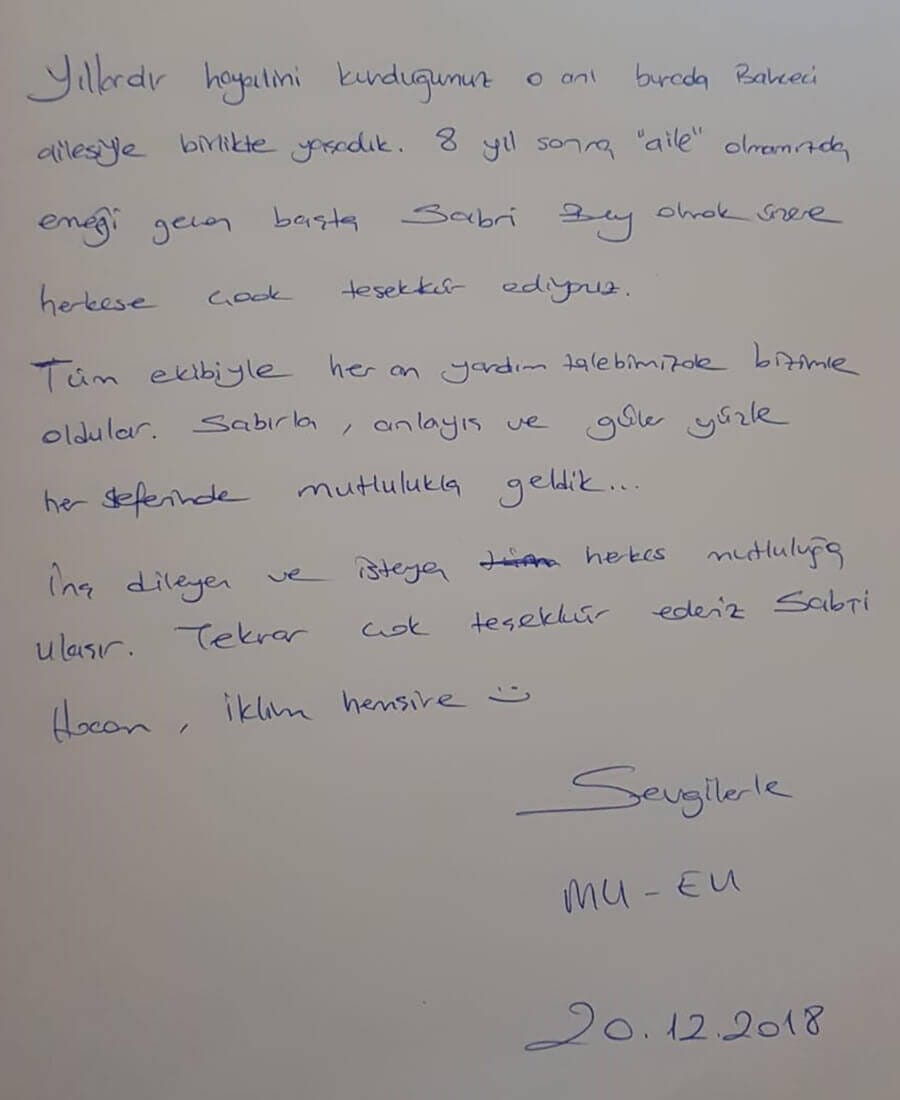 Yıllardır hayalini kurduğumuz o anı burada Bahceci
ailesiyle birlikte yaşadık. 8 yıl sonra "aile" olmamızda
emeği geçen başta Sabri Bey olmak üzere
herkese çook teşekkür ediyoruz.
Tüm ekibiyle her an yardım talebimizde bizimle
oldular. Sabırla, anlayış ve güler yüzle
her seferinde mutlulukla geldik...
İnş dileyen ve isteyen herkes mutluluğa
ulaşır. Tekrar çok teşekkür ederiz Sabri
Hocam, İklim hemşire :)
Sevgilerle
MU - EU
20.12.2018